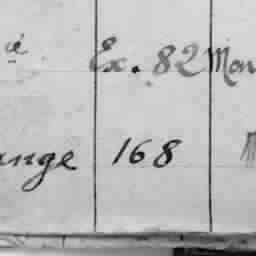 Ex. 82 Mon
ange 168